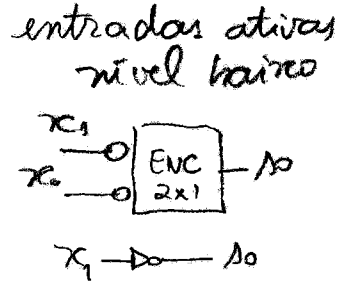 entradas ativas
nível baixo
x₁
x₀
ENC
2x1
s₀
x₁
s₀